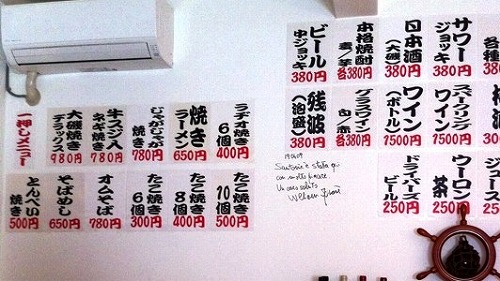 一押しメニュー
大磯焼き
デラックス
980円
牛スジ入
ネギ焼き
780円
じゃがじゃが
焼き
780円
焼き
ラーメン
650円
ラヂオ焼き
6個
400円
とんぺい
焼き
500円
そばめし
650円
オムそば
780円
たこ焼き
6個
300円
たこ焼き
8個
400円
たこ焼き
10個
500円
ビール
中ジョッキ
380円
本格焼酎
麦/芋
各380円
日本酒
(大磯)
380円
サワー
ジョッキ
380円
各種
38
残波
(泡盛)
380円
グラスワイン
白/赤
各380円
ワイン
(ボトル)
1500円
スパークリング
ワイン
1500円
300
ドライバーズ
ビール
250円
ウーロン
茶
250円
ジュース
25